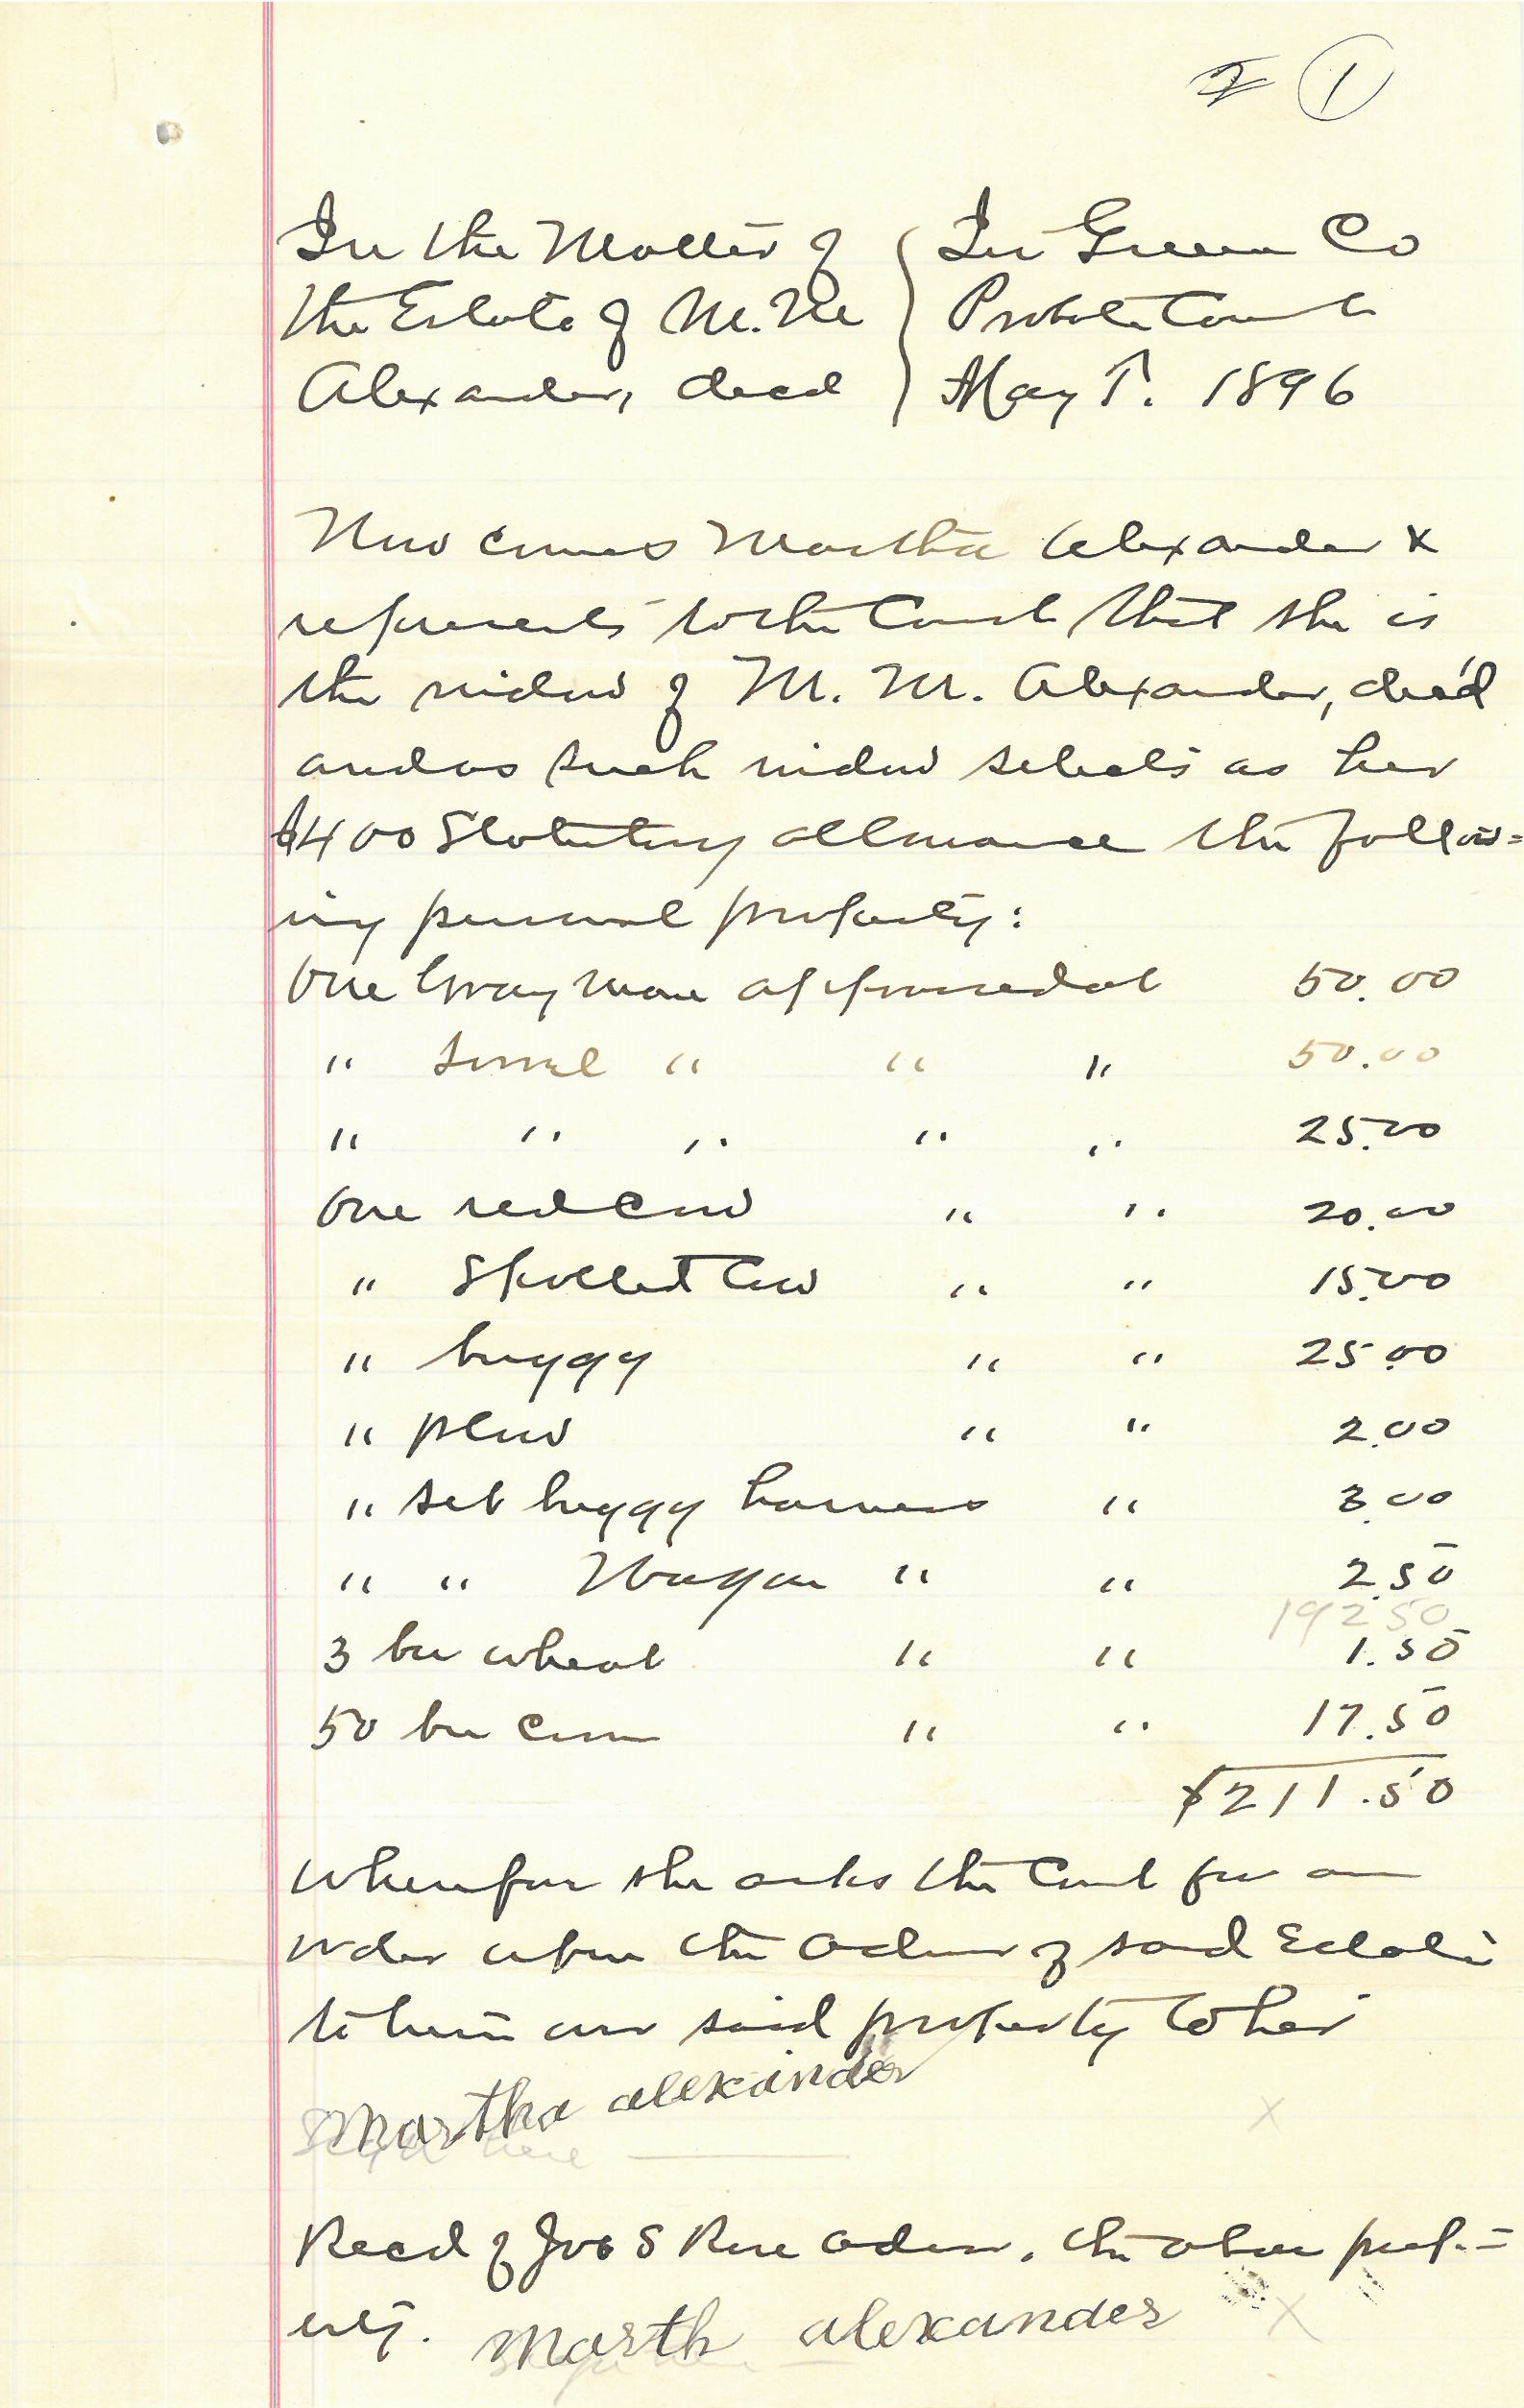 ①
In the Matter of
the Estate of M. M
Alexander, decd
In Green Co
Probate Court
May T. 1896
Now comes Martha Alexander &
represents to the Court that she is
the widow of M. M. Alexander, dec'd
and as such widow selects as her
$400 Statutory allowance the follow=
ing personal property:
One Gray mare appraised at 50.00
" Sorrel " " " 50.00
" " " " " 25.00
One red cow " " 20.00
" Spotted Cow " " 15.00
" buggy " " 25.00
" plow " " 2.00
" set buggy harness " 3.00
" " Wagon " " 2.50
192 50
3 bu wheat " " 1.50
50 bu corn " " 17.50
$211.50
Wherefore she asks the Court for an
order upon the Admr of said Estate
to turn over said property to her
Martha alexander
Sign here
Recd of S Admr. the above prop=
erty. Marth alexander